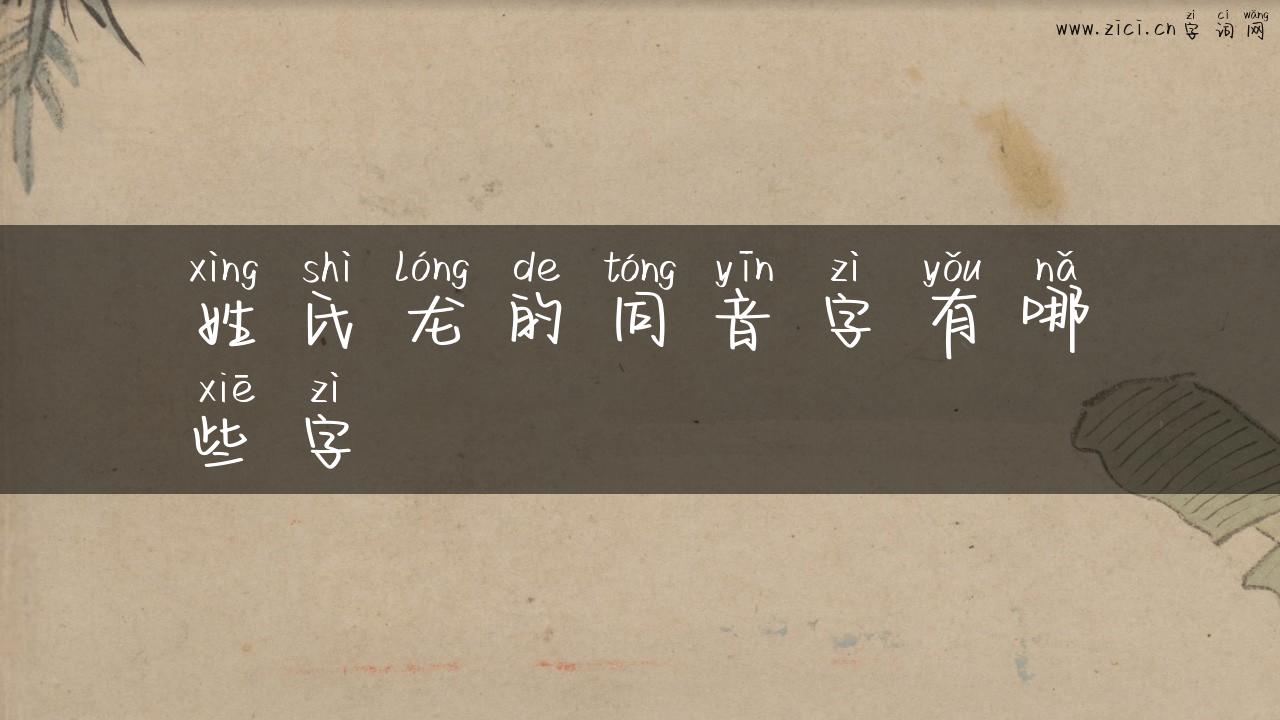 zì cí wǎng
www.zici.cn 字 词 网
xìng shì lóng de tóng yīn zì yǒu nǎ
姓 氏 龙 的 同 音 字 有 哪
xiē zì
些 字